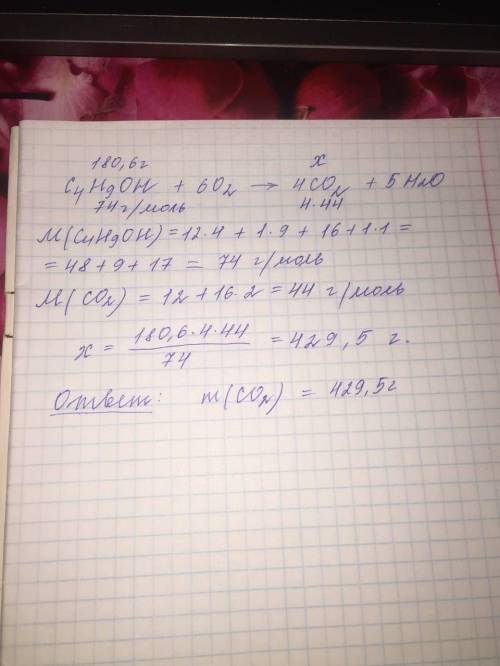 180,6г x
C4H9OH + 6O2 → 4CO2 + 5H2O
74 г/моль 4·44
M(C4H9OH) = 12·4 + 1·9 + 16 + 1·1 =
= 48 + 9 + 17 = 74 г/моль
M(CO2) = 12 + 16·2 = 44 г/моль
x = 180,6·4·44 / 74 = 429,5 г.
Ответ: m(CO2) = 429,5г